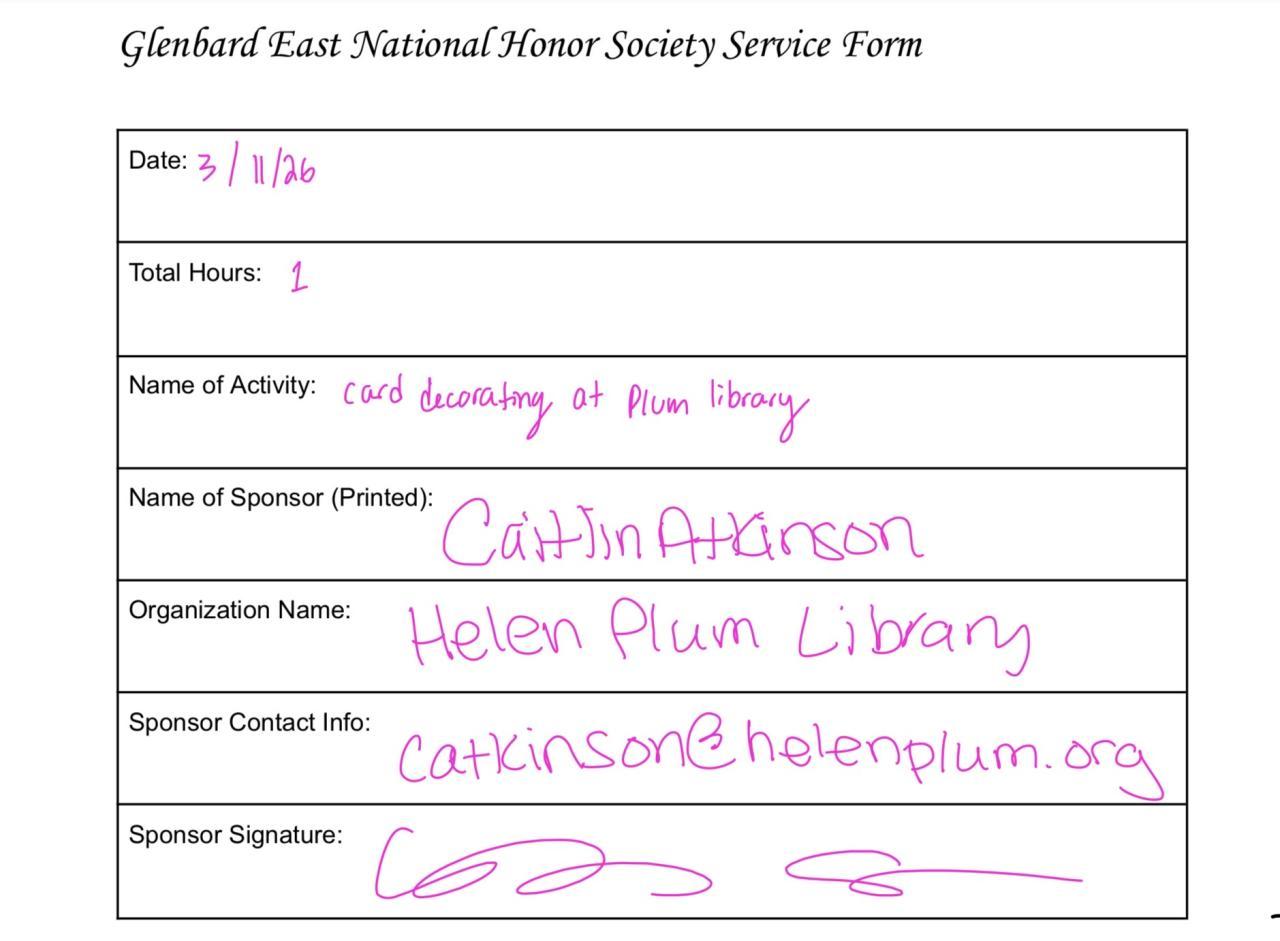 Glenbard East National Honor Society Service Form
Date: 3/11/26
Total Hours: 1
Name of Activity: card decorating at Plum library
Name of Sponsor (Printed): Caitlin Atkinson
Organization Name: Helen Plum Library
Sponsor Contact Info: catkinson@helenplum.org
Sponsor Signature: